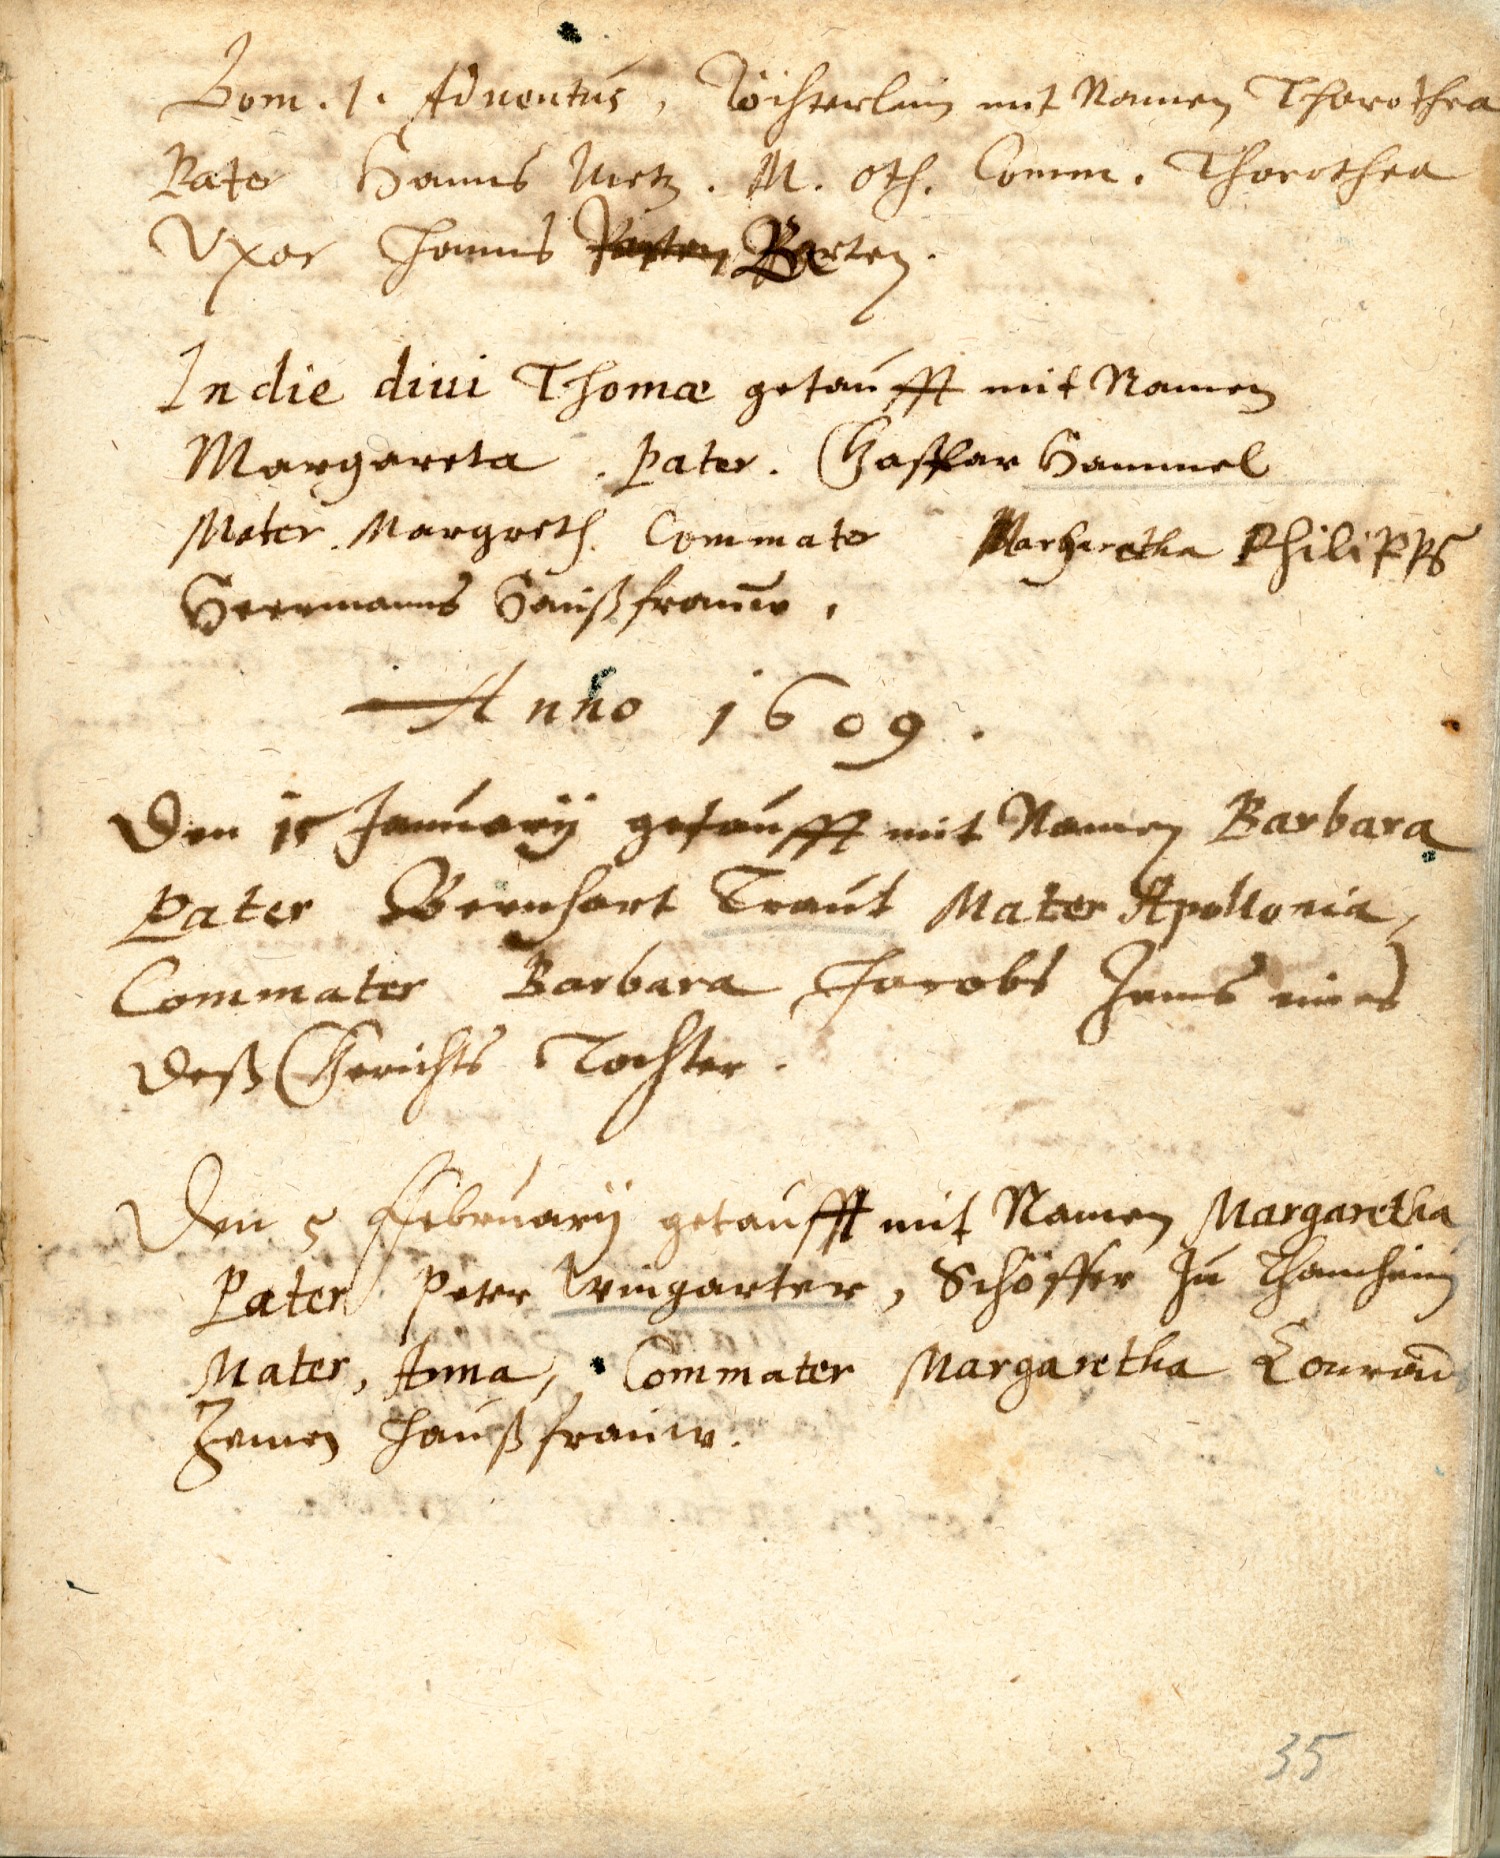 Dom. 1. Aduentus, Töchterlin mit Namen Thorothea
Pater Hanns Metz. M. Oth. Comm. Thorothea
Vxor Hanns Barten.
In die diui Thomæ getaufft mit Namen
Margareta. Pater. Caspar Hammel
Mater. Margreth. Commater Margaretha PhiliPPS
Heermanns Haußfrauw.
Anno 1609.
Den 15 January getaufft mit Namen Barbara
Pater Bernhart Traut Mater Apollonia,
Commater Barbara Jacobs eines
deß Gerichts Tochter.
Den 5 February getaufft mit Namen Margaretha
Pater Peter Wingarter, Schöffer zu
Mater, Anna, Commater Margaretha Conrad
haußfrauw.
35